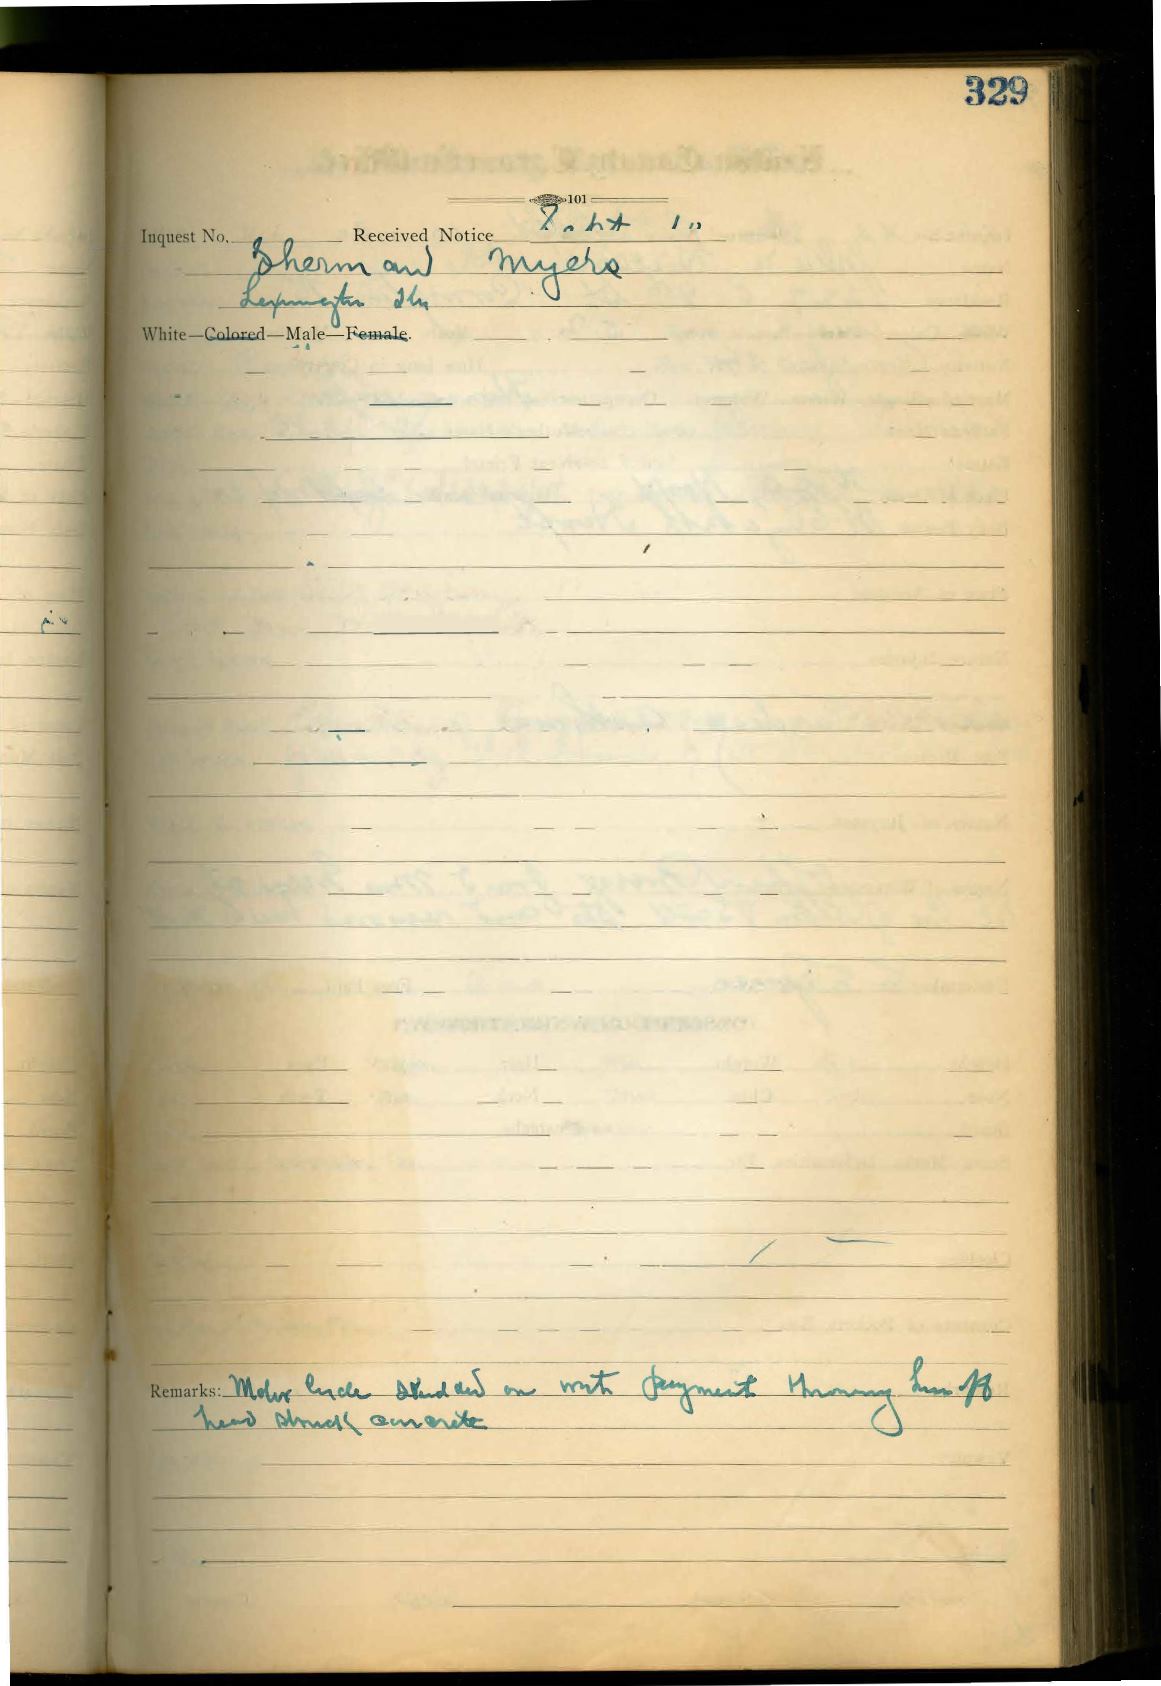 329
101
Inquest No. Received Notice Sept 10
Sherman Myers
Lexington
White—Colored—Male—Female.
Remarks: Motor Cycle skidded on wet payment throwing him off
head struck concrete